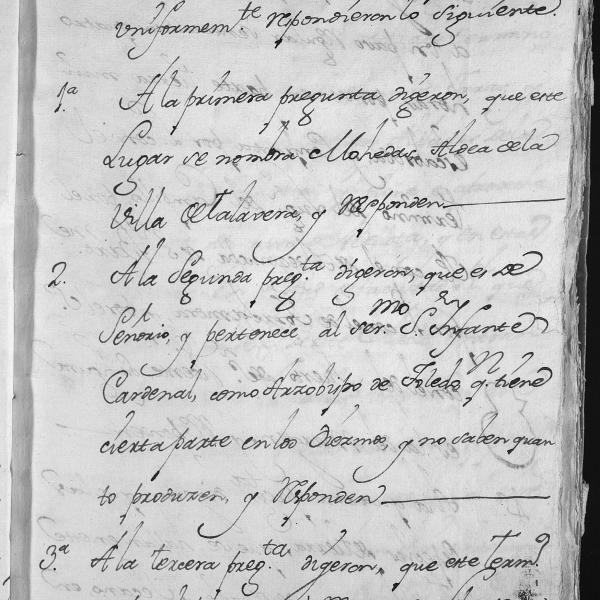 uniformem.te respondieron lo siguiente.
1.ª A la primera pregunta digeron, que este
Lugar se nombra Mohedas, Aldea de la
Villa de Talavera, y responden
2. A la segunda preg.ta digeron, que es de
Señorio, y pertenece al ser.mo S.r Infante
Cardenal, como Arzobispo de Toledo, q.n tiene
cierta parte en los Diezmos, y no saben quan
to produzen, y responden
3.ª A la tercera preg.ta digeron, que este Term.o